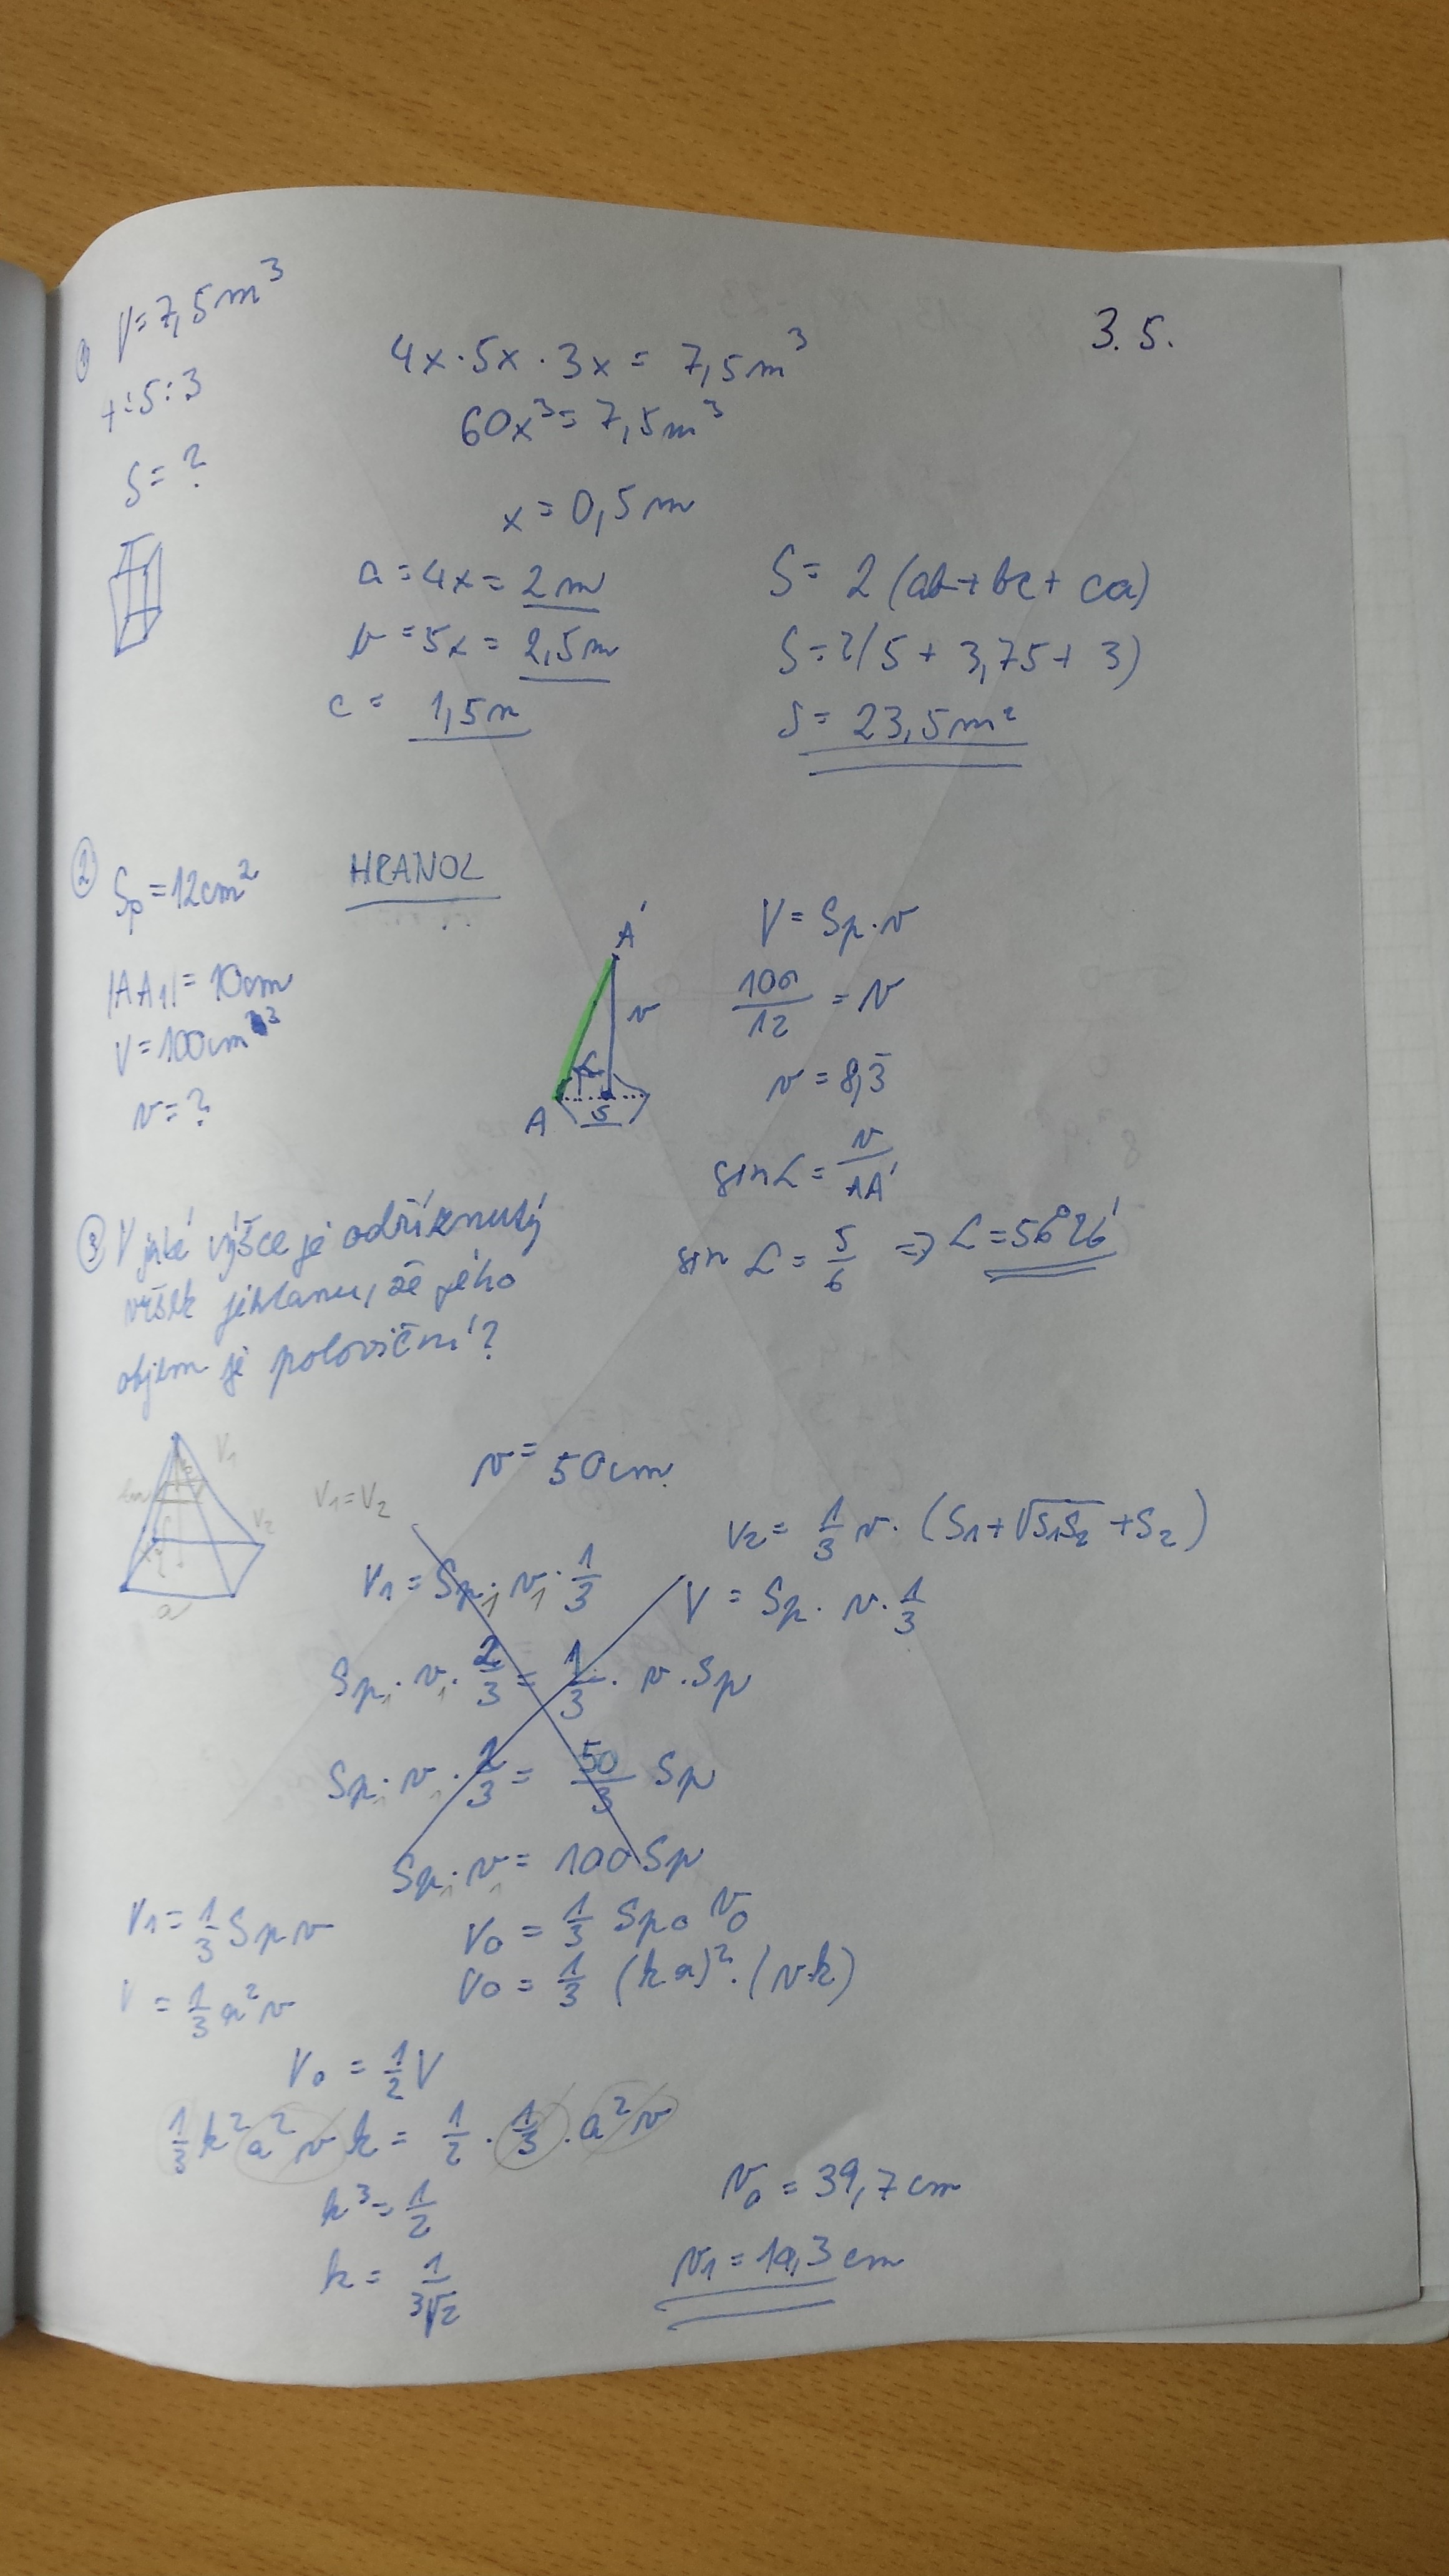 3. 5.
① V=7,5m³
4:5:3
S=?
4x·5x·3x = 7,5m³
60x³=7,5m³
x=0,5m
a=4x=2m
b=5x=2,5m
c= 1,5m
S= 2(ab+bc+ca)
S=2(5+3,75+3)
S=23,5m²
② Sp=12cm²
HRANOL
|AA₁|=10cm
V=100cm³
v=?
A'
v
α
A
S
V=Sp·v
100/12 = v
v=8,3̄
sin α = v/AA'
sin α = 5/6 => α=56°26'
③ V jaké výšce je odříznutý
vršek jehlanu, že jeho
objem je poloviční?
V₁
V₂
a
V₁=V₂
v=50cm
V₂ = 1/3 v·(S₁+√S₁S₂+S₂)
V₁ = Sp₁·v₁·1/3
V = Sp·v·1/3
Sp₁·v₁·2/3 = 1/3·v·Sp
Sp₁·v₁·2/3 = 50/3 Sp
Sp₁·v₁ = 100Sp
V₁=1/3 Sp v
V₀ = 1/3 Sp₀ v₀
V = 1/3 a² v
V₀ = 1/3 (ka)²·(v·k)
V₀ = 1/2 V
1/3 k² a² v k = 1/2 · 1/3 · a² v
k³=1/2
k = 1/³√2
v₀ = 39,7cm
v₁=10,3cm